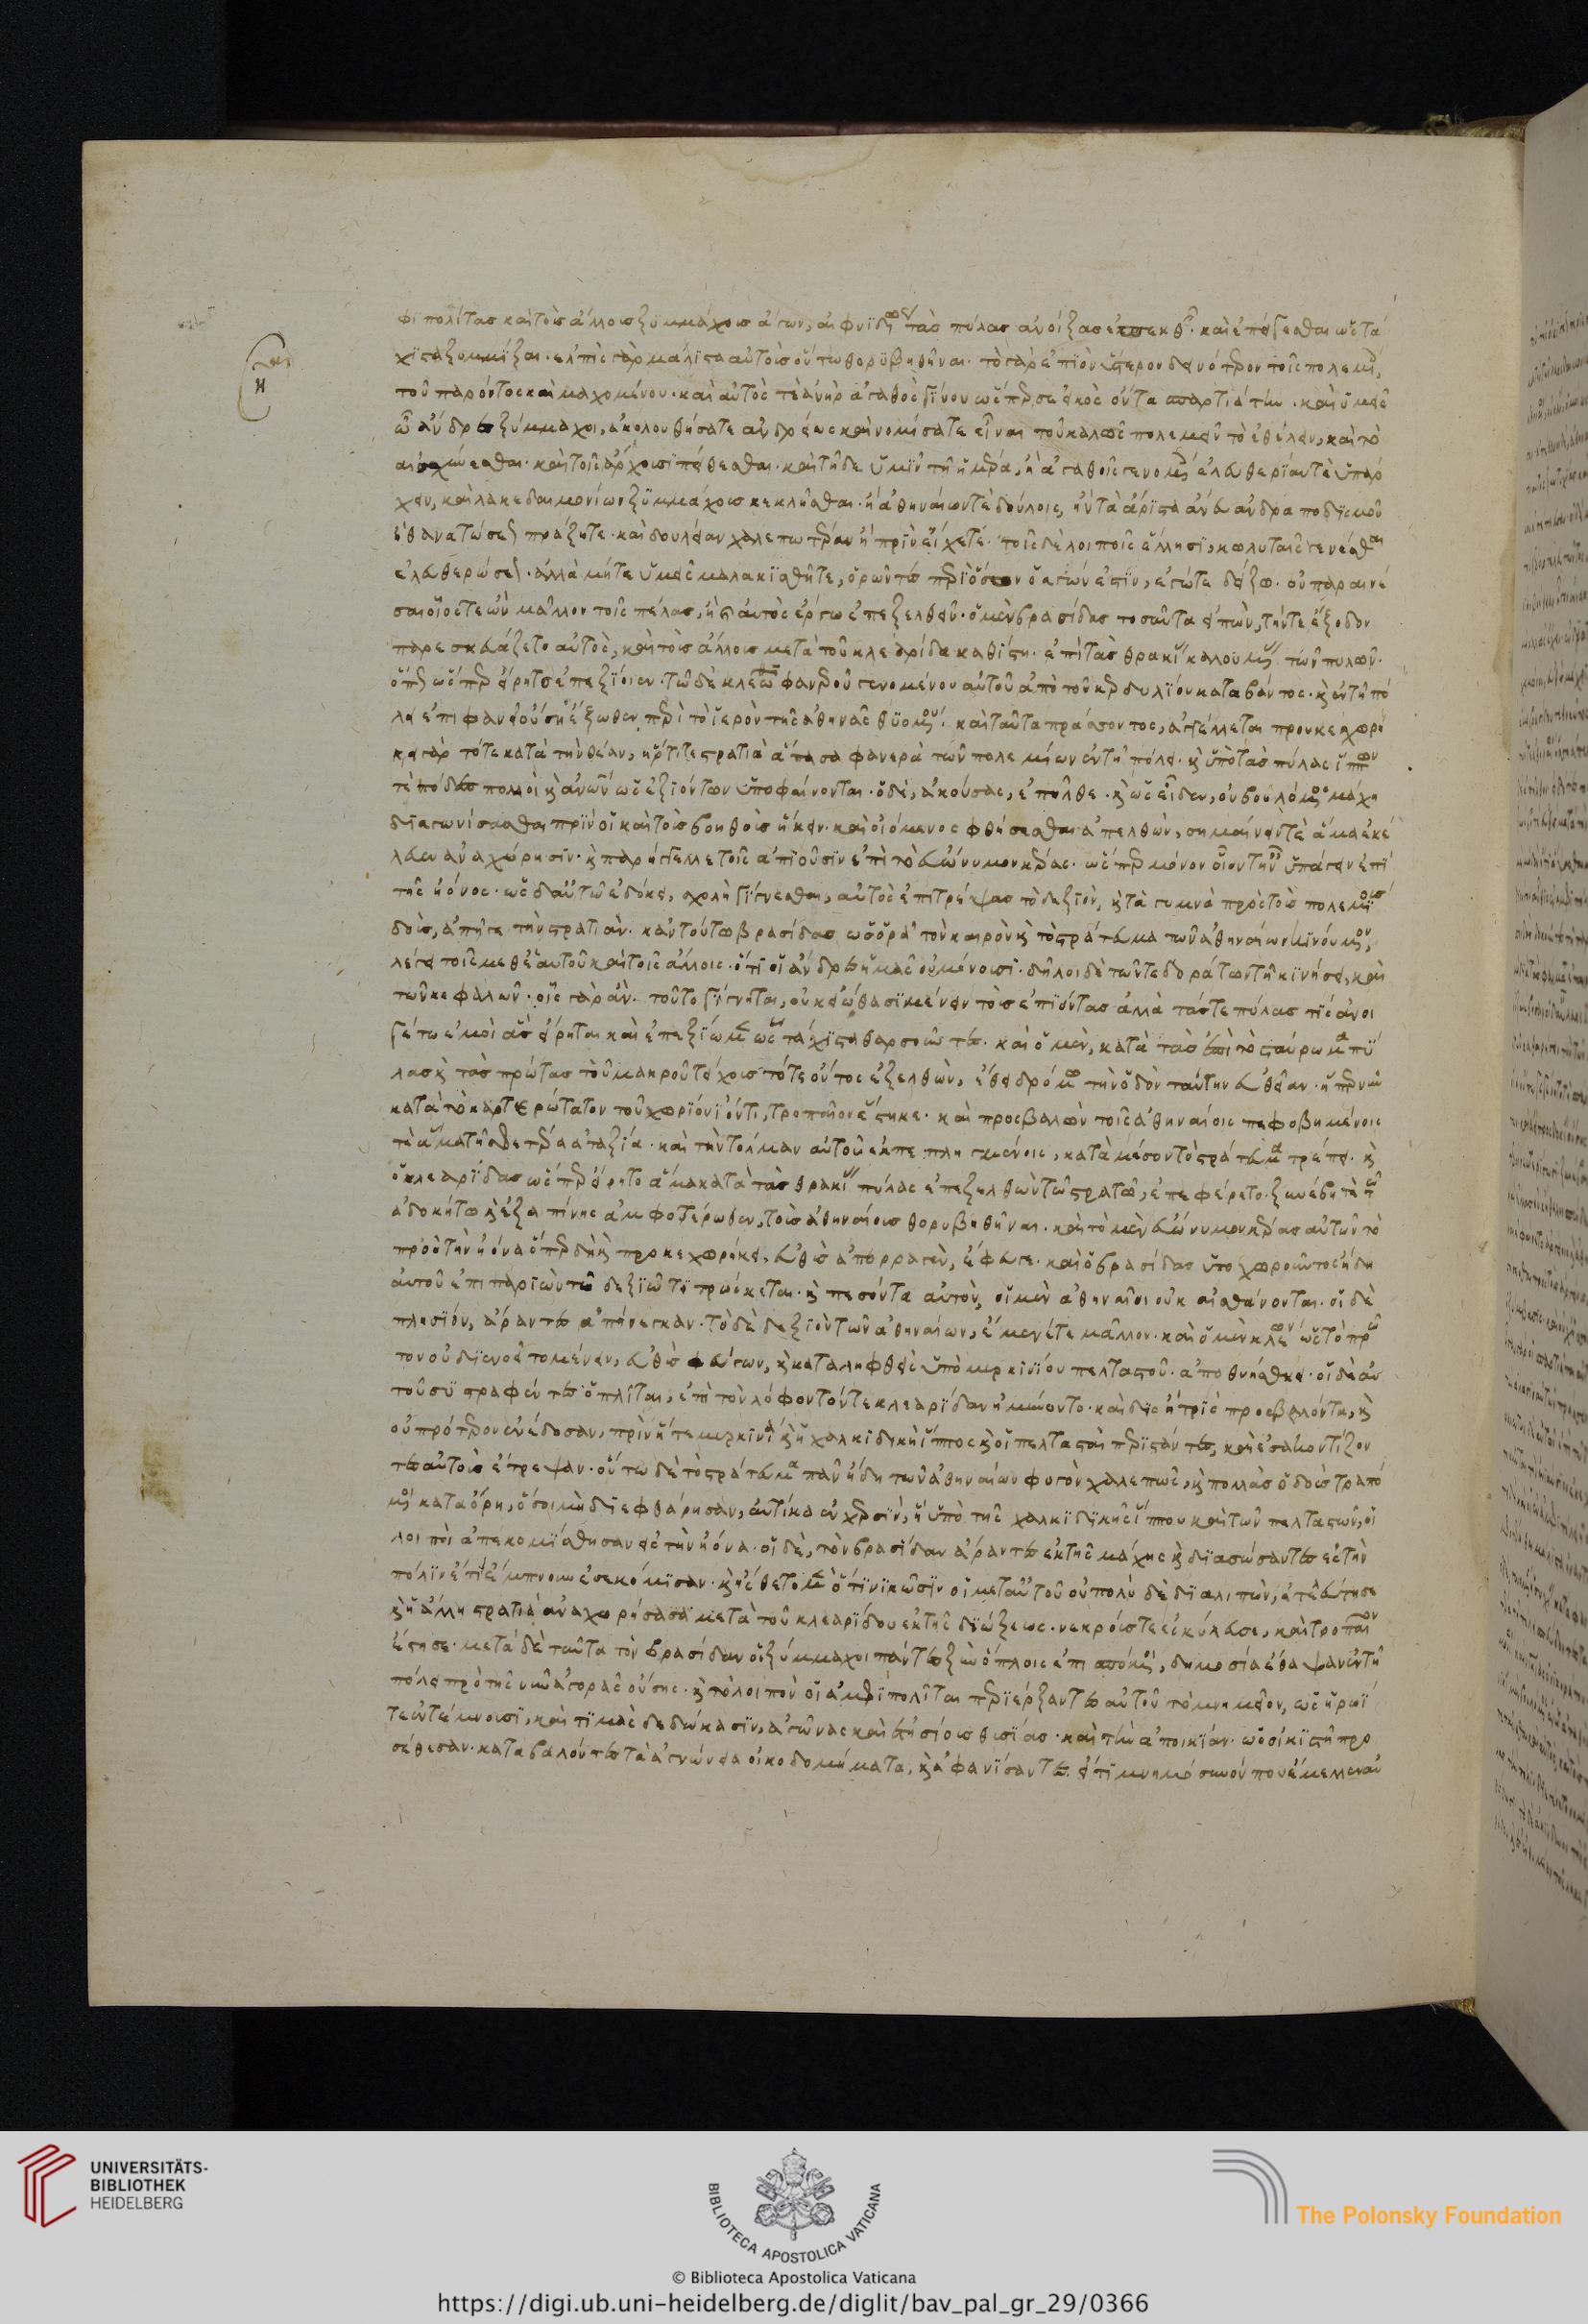 φιπολίτας καὶ τοὺς ἄλλους ξυμμάχους ἄγων, αἰφνιδίως τὰς πύλας ἀνοίξας ἐπεκθεῖν· καὶ ἐπείγεσθαι ὡς τά
χιστα ξυμμίξαι· ἐλπὶς γὰρ μάλιστα αὐτοὺς οὕτω θορυβηθῆναι· τὸ γὰρ ἐπιὸν ὕστερον δεινότερον τοῖς πολεμίοις
τοῦ παρόντος καὶ μαχομένου· καὶ αὐτός τε ἀνὴρ ἀγαθὸς γίνου ὥσπερ σε εἰκὸς ὄντα σπαρτιάτην· καὶ ὑμεῖς
ὦ ἄνδρες ξύμμαχοι, ἀκολουθήσατε ἀνδρείως καὶ νομίσατε εἶναι τοῦ καλῶς πολεμεῖν τὸ ἐθέλειν, καὶ τὸ
αἰσχύνεσθαι· καὶ τοῖς ἄρχουσι πείθεσθαι· καὶ τῇδε ὑμῖν τῇ ἡμέρᾳ, ἢ ἀγαθοῖς γενομένοις ἐλευθερίαν τὲ ὑπάρ
χειν, καὶ λακεδαιμονίων ξυμμάχοις κεκλῆσθαι· ἢ ἀθηναίων τὲ δούλοις, ἢν τὰ ἄριστα ἄνευ ἀνδραποδισμοῦ
ἢ θανατώσεως πράξητε· καὶ δουλείαν χαλεπωτέραν ἢ πρὶν εἴχετε· τοῖς δὲ λοιποῖς ἕλλησι, κωλυταῖς γενέσθαι
ἐλευθερώσεως· ἀλλὰ μήτε ὑμεῖς μαλακισθῆτε, ὁρῶντες περὶ ὅσων ὁ ἀγών ἐστιν, ἐγώ τε δείξω· οὐ παραινέ
σαι οἷός τε ὢν μᾶλλον τοῖς πέλας, ἢ καὶ αὐτὸς ἔργῳ ἐπεξελθεῖν· ὁ μὲν βρασίδας τοσαῦτα εἰπὼν, τήν τε ἔξοδον
παρεσκευάζετο αὐτὸς, καὶ τοὺς ἄλλους μετὰ τοῦ κλεαρίδα καθίστη· ἐπὶ τὰς θρακίας καλουμένας τῶν πυλῶν·
ὅπως ὥσπερ εἴρητο ἐπεξίοιεν· τῷ δὲ κλέωνι φανεροῦ γενομένου αὐτοῦ ἀπὸ τοῦ κερδυλίου καταβάντος· καὶ ἐν τῇ πό
λει ἐπιφανεῖ οὔσῃ ἔξωθεν, περὶ τὸ ἱερὸν τῆς ἀθηνᾶς θυομένου· καὶ ταῦτα πράσσοντος, ἀγγέλλεται προυκεχωρή
κει γὰρ τότε κατὰ τὴν θέαν, ὅτι ἥ τε στρατιὰ ἅπασα φανερὰ τῶν πολεμίων ἐν τῇ πόλει· καὶ ὑπὸ τὰς πύλας ἵππων
τὲ πόδες πολλοὶ καὶ ἀνθρώπων ὡς ἐξιόντων ὑποφαίνονται· ὁ δὲ, ἀκούσας, ἐπῆλθε· καὶ ὡς εἶδεν, οὐ βουλόμενος μάχῃ
διαγωνίσασθαι πρίν οἱ καὶ τοὺς βοηθοὺς ἥκειν· καὶ οἰόμενος φθήσεσθαι ἀπελθὼν, σημαίνειν τὲ ἅμα ἐκέ
λευεν ἀναχώρησιν· καὶ παρήγγελλε τοῖς ἀπιοῦσιν ἐπὶ τὸ εὐώνυμον κέρας· ὥσπερ μόνον οἷόν τ' ἦν ὑπάγειν ἐπὶ
τῆς ἠιόνος· ὡς δ' αὐτῷ ἐδόκει, σχολὴ γίγνεσθαι, αὐτὸς ἐπιστρέψας τὸ δεξιὸν, καὶ τὰ γυμνὰ πρὸς τοὺς πολεμίους
δοὺς, ἀπῆγε τὴν στρατιάν· κἀν τούτῳ βρασίδας ὡς ὁρᾷ τὸν καιρὸν καὶ τὸ στράτευμα τῶν ἀθηναίων κινούμενον,
λέγει τοῖς μεθ' ἑαυτοῦ καὶ τοῖς ἄλλοις· ὅτι οἱ ἄνδρες ἡμᾶς οὐ μένουσι· δῆλοι δὲ τῶν τε δοράτων τῇ κινήσει, καὶ
τῶν κεφαλῶν· οἷς γὰρ ἂν τοῦτο γίγνηται, οὐκ εἰώθασι μένειν τοὺς ἐπιόντας ἀλλὰ τάς τε πύλας τὶς ἀνοι
γέτω ἐμοὶ ἃς εἴρηται καὶ ἐπεξίωμεν ὡς τάχιστα θαρσοῦντες· καὶ ὁ μὲν, κατὰ τὰς ἐπὶ τὸ σταύρωμα πύ
λας καὶ τὰς πρώτας τοῦ μακροῦ τείχους τότε ὄντος ἐξελθὼν, ἔθει δρόμῳ τὴν ὁδὸν ταύτην εὐθεῖαν· ᾗπερ νῦν
κατὰ τὸ καρτερώτατον τοῦ χωρίου ἰόντι, τροπαῖον ἕστηκε· καὶ προσβαλὼν τοῖς ἀθηναίοις πεφοβημένοις
τὲ ἅμα τῇ σφετέρᾳ ἀταξίᾳ· καὶ τὴν τόλμαν αὐτοῦ ἐκπεπληγμένοις, κατὰ μέσον τὸ στράτευμα τρέπει· καὶ
ὁ κλεαρίδας ὥσπερ εἴρητο ἅμα κατὰ τὰς θρακίας πύλας ἐπεξελθὼν τῷ στρατῷ, ἐπεφέρετο· ξυνέβη τὲ τῷ
ἀδοκήτῳ καὶ ἐξαπίνης ἀμφοτέρωθεν, τοὺς ἀθηναίους θορυβηθῆναι· καὶ τὸ μὲν εὐώνυμον κέρας αὐτῶν τὸ
πρὸς τὴν ἠιόνα ὅπερ δὴ καὶ προκεχωρήκει, εὐθὺς ἀπορραγὲν, ἔφευγε· καὶ ὁ βρασίδας ὑποχωροῦντος ἤδη
αὐτοῦ ἐπιπαριὼν τῷ δεξιῷ τιτρώσκεται· καὶ πεσόντα αὐτὸν, οἱ μὲν ἀθηναῖοι οὐκ αἰσθάνονται· οἱ δὲ
πλησίον, ἄραντες ἀπήνεγκαν· τὸ δὲ δεξιὸν τῶν ἀθηναίων, ἔμενέ τε μᾶλλον· καὶ ὁ μὲν κλέων ὡς τὸ πρῶ
τον οὐ διενοεῖτο μένειν, εὐθὺς φεύγων, καὶ καταληφθεὶς ὑπὸ μυρκινίου πελταστοῦ· ἀποθνήσκει· οἱ δὲ αὐ
τοῦ συστραφέντες ὁπλῖται, ἐπὶ τὸν λόφον τόν τε κλεαρίδαν ἠμύνοντο· καὶ δὶς ἢ τρὶς προσβαλόντα, καὶ
οὐ πρότερον ἐνέδοσαν, πρὶν ἥ τε μυρκινία καὶ ἡ χαλκιδικὴ ἵππος καὶ οἱ πελτασταὶ περιστάντες, καὶ ἐσακοντίζον
τες αὐτοὺς ἔτρεψαν· οὕτω δὲ τὸ στράτευμα πᾶν ἤδη τῶν ἀθηναίων φυγὸν χαλεπῶς, καὶ πολλὰς ὁδοὺς τραπό
μενοι κατὰ ὄρη, ὅσοι μὴ διεφθάρησαν, αὐτίκα ἐν χερσὶν, ἢ ὑπὸ τῆς χαλκιδικῆς ἵππου καὶ τῶν πελταστῶν, οἱ
λοιποὶ ἀπεκομίσθησαν εἰς τὴν ἠιόνα· οἱ δὲ, τὸν βρασίδαν ἄραντες ἐκ τῆς μάχης καὶ διασώσαντες ἐς τὴν
πόλιν ἔτι ἔμπνουν ἐσεκόμισαν· καὶ ᾔσθετο μὲν ὅτι νικῶσιν οἱ μετ' αὐτοῦ οὐ πολὺ δὲ διαλιπὼν, ἐτελεύτησε
καὶ ἡ ἄλλη στρατιὰ ἀναχωρήσασα μετὰ τοῦ κλεαρίδου ἐκ τῆς διώξεως· νεκρούς τε ἐσκύλευσε, καὶ τροπαῖον
ἔστησε· μετὰ δὲ ταῦτα τὸν βρασίδαν οἱ ξύμμαχοι πάντες ξὺν ὅπλοις ἐπισπόμενοι, δημοσίᾳ ἔθαψαν ἐν τῇ
πόλει πρὸ τῆς νῦν ἀγορᾶς οὔσης· καὶ τὸ λοιπὸν οἱ ἀμφιπολῖται περιέρξαντες αὐτοῦ τὸ μνημεῖον, ὡς ἥρωί
τε ἐντέμνουσι, καὶ τιμὰς δεδώκασιν, ἀγῶνας καὶ ἐτησίους θυσίας· καὶ τὴν ἀποικίαν· ὡς οἰκιστῇ προ
σέθεσαν· καταβαλόντες τὰ ἁγνώνεια οἰκοδομήματα, καὶ ἀφανίσαντες εἴ τι μνημόσυνόν που ἔμελλεν αὐ
UNIVERSITÄTS-
BIBLIOTHEK
HEIDELBERG
BIBLIOTECA APOSTOLICA VATICANA
The Polonsky Foundation
© Biblioteca Apostolica Vaticana
https://digi.ub.uni-heidelberg.de/diglit/bav_pal_gr_29/0366